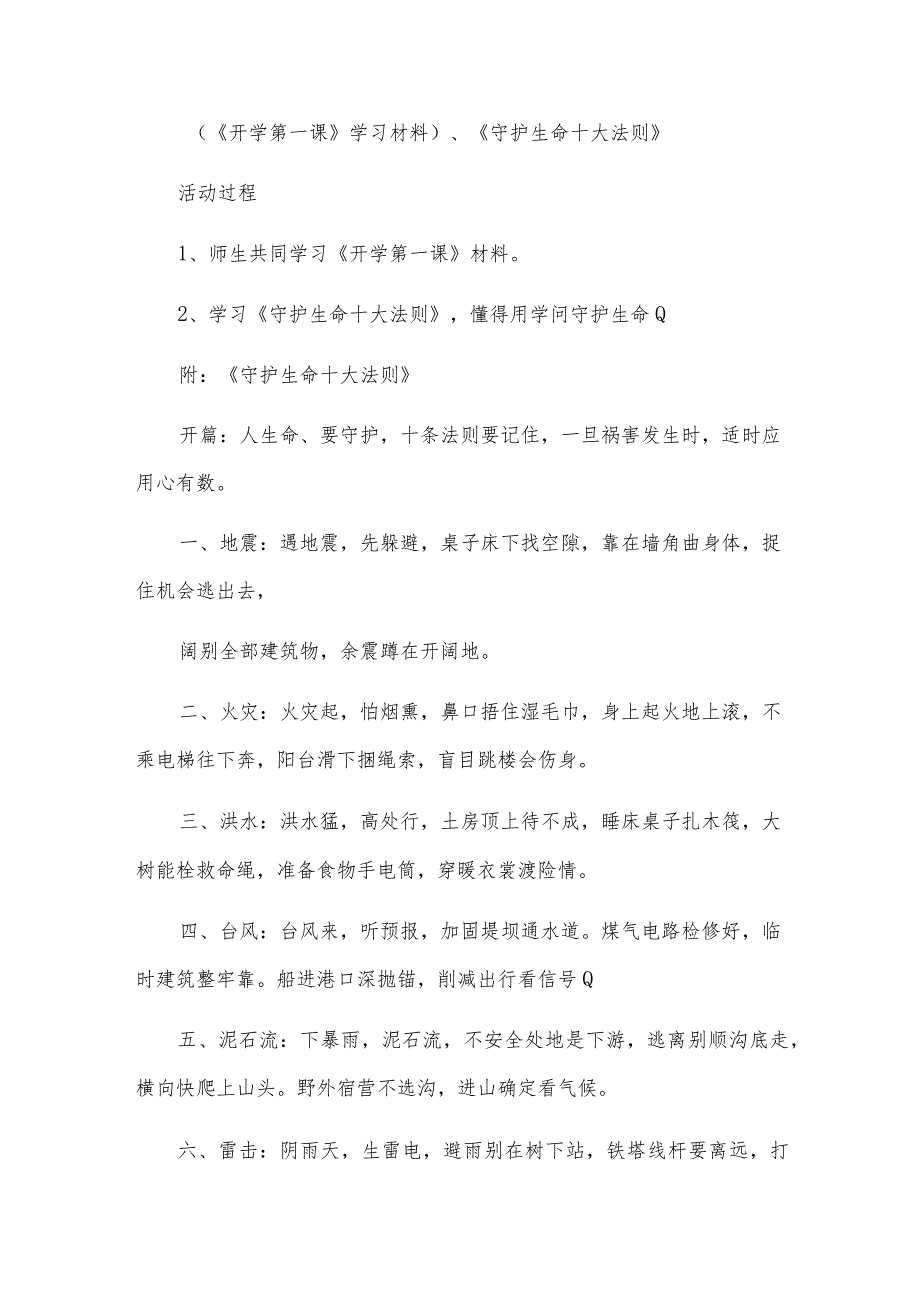 （《开学第一课》学习材料）、《守护生命十大法则》
活动过程
1、师生共同学习《开学第一课》材料。
2、学习《守护生命十大法则》，懂得用学问守护生命Q
附：《守护生命十大法则》
开篇：人生命、要守护，十条法则要记住，一旦祸害发生时，适时应
用心有数。
一、地震：遇地震，先躲避，桌子床下找空隙，靠在墙角曲身体，捉
住机会逃出去，
阔别全部建筑物，余震蹲在开阔地。
二、火灾：火灾起，怕烟熏，鼻口捂住湿毛巾，身上起火地上滚，不
乘电梯往下奔，阳台滑下捆绳索，盲目跳楼会伤身。
三、洪水：洪水猛，高处行，土房顶上待不成，睡床桌子扎木筏，大
树能栓救命绳，准备食物手电筒，穿暖衣裳渡险情。
四、台风：台风来，听预报，加固堤坝通水道。煤气电路检修好，临
时建筑整牢靠。船进港口深抛锚，削减出行看信号Q
五、泥石流：下暴雨，泥石流，不安全处地是下游，逃离别顺沟底走，
横向快爬上山头。野外宿营不选沟，进山确定看气候。
六、雷击：阴雨天，生雷电，避雨别在树下站，铁塔线杆要离远，打